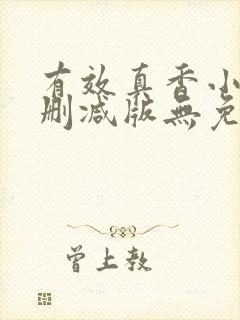 有效真香小
删减版無免
曾上教